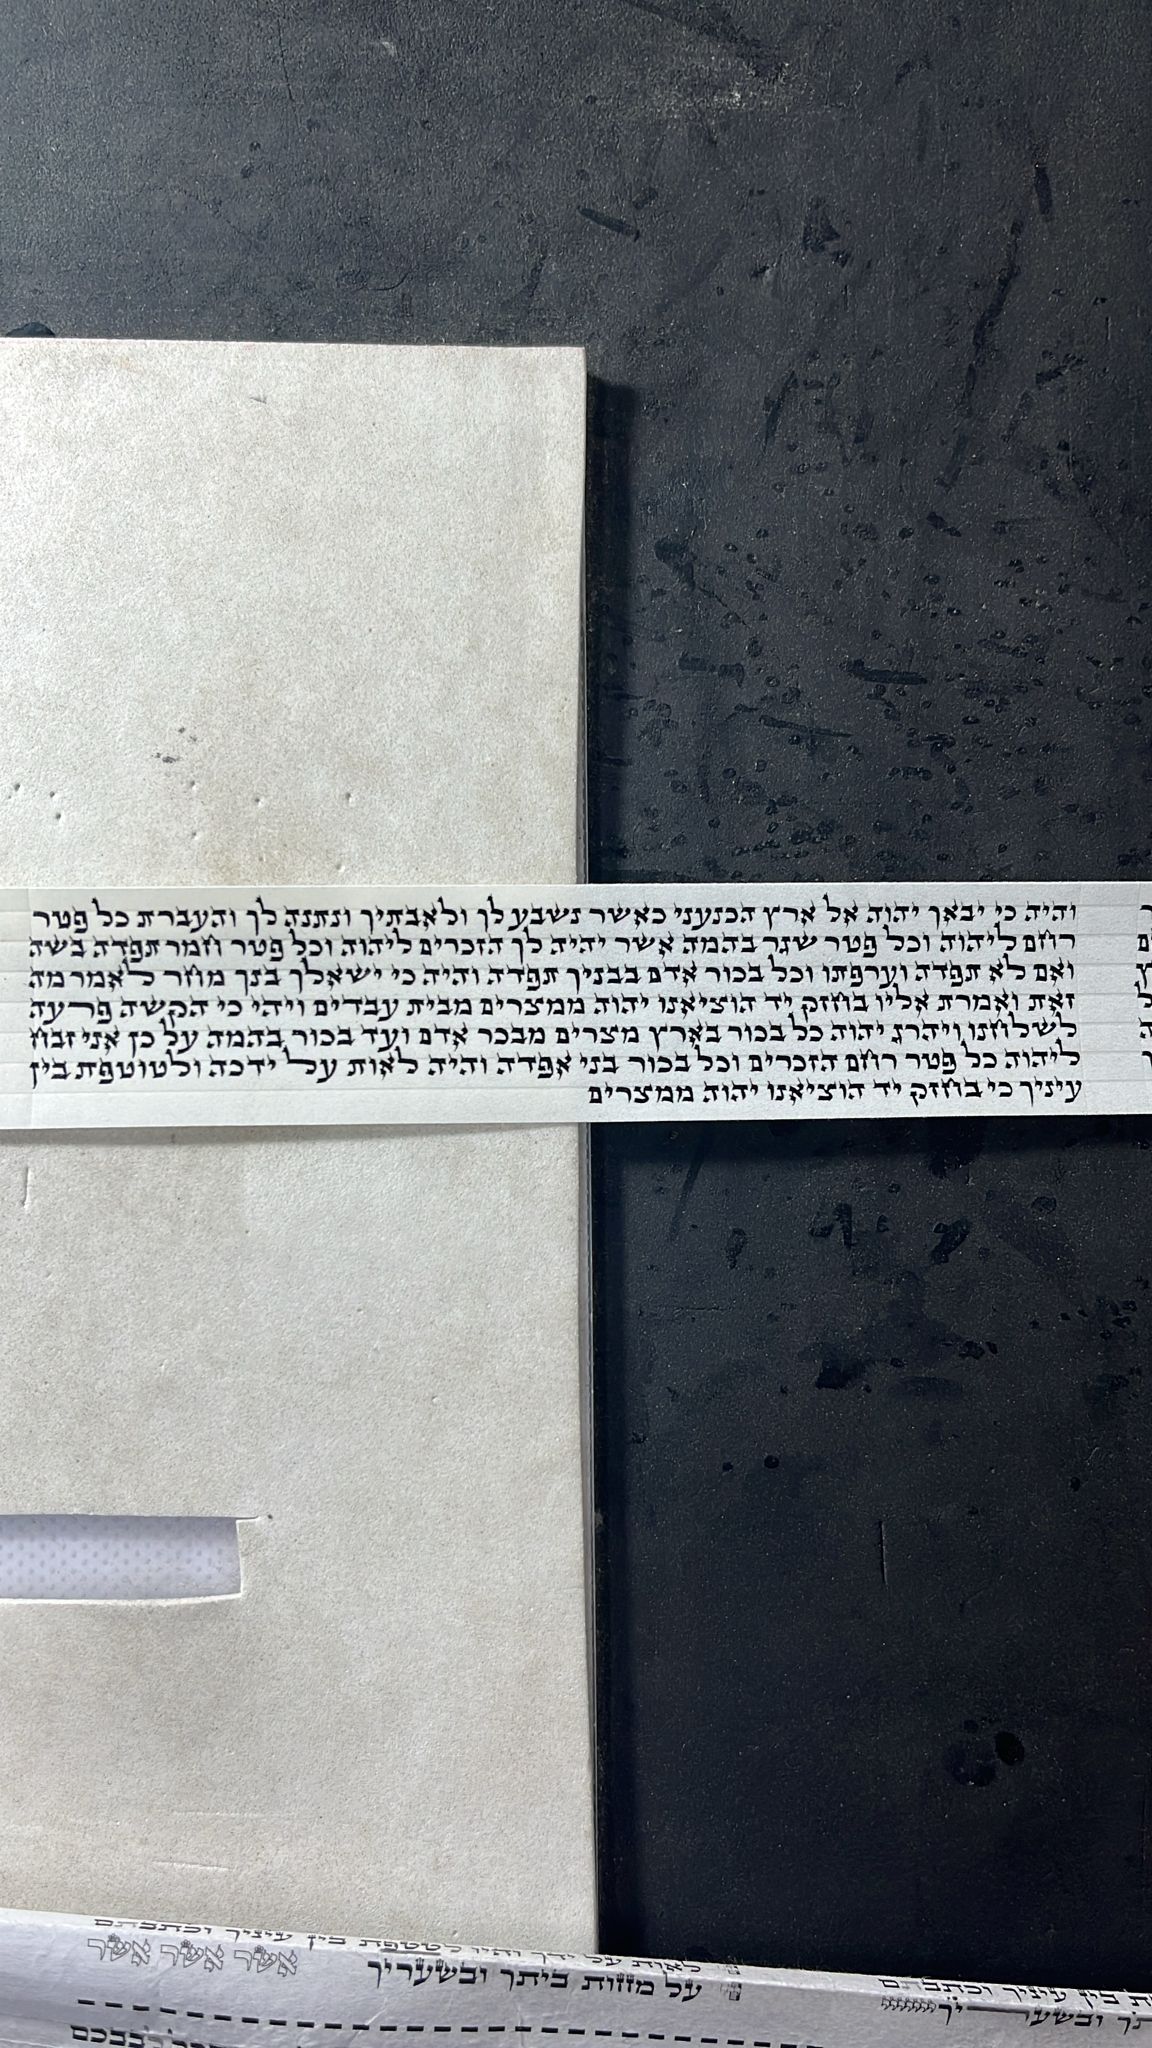 והיה כי יבאך יהוה אל ארץ הכנעני כאשר נשבע לך ולאבתיך ונתנה לך והעברת כל פטר
רחם ליהוה וכל פטר שגר בהמה אשר יהיה לך הזכרים ליהוה וכל פטר חמר תפדה בשה
ואם לא תפדה וערפתו וכל בכור אדם בבניך תפדה והיה כי ישאלך בנך מחר לאמר מה
זאת ואמרת אליו בחזק יד הוציאנו יהוה ממצרים מבית עבדים ויהי כי הקשה פרעה
לשלחנו ויהרג יהוה כל בכור בארץ מצרים מבכר אדם ועד בכור בהמה על כן אני זבח
ליהוה כל פטר רחם הזכרים וכל בכור בני אפדה והיה לאות על ידכה ולטוטפת בין
עיניך כי בחזק יד הוציאנו יהוה ממצרים
לאות על ידך והיו לטטפת בין עיניך וכתבתם
על מזזות ביתך ובשעריך אשר אשר אשר
בין עיניך וכתבתם
ובשעריך